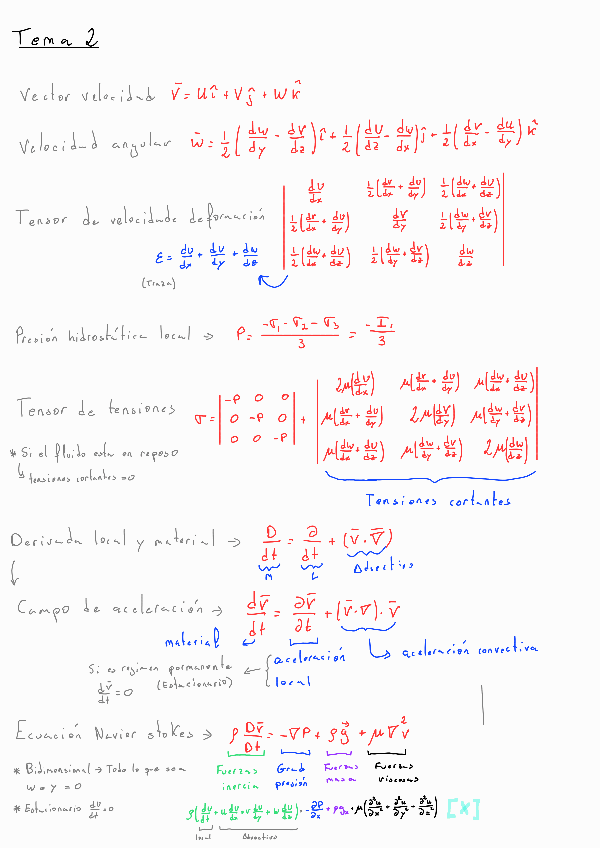 Tema 2
Vector velocidad V̄ = u î + v ĵ + w k̂
Velocidad angular w̄ = 1/2 (dw/dy - dv/dz) î + 1/2 (dU/dz - dw/dx) ĵ + 1/2 (dv/dx - du/dy) k̂
Tensor de velocidad de deformación
| dU/dx 1/2(dv/dx + dU/dy) 1/2(dw/dx + dU/dz) |
| 1/2(dv/dx + dU/dy) dv/dy 1/2(dw/dy + dv/dz) |
| 1/2(dw/dx + dU/dz) 1/2(dw/dy + dv/dz) dw/dz |
ε = du/dx + dv/dy + dw/dz
(Traza)
Presión hidrostática local → P = (-σ₁ - σ₂ - σ₃)/3 = -I₁/3
Tensor de tensiones σ =
| -P 0 0 |
| 0 -P 0 |
| 0 0 -P |
+
| 2μ(dU/dx) μ(dv/dx + dU/dy) μ(dw/dx + dU/dz) |
| μ(dv/dx + dU/dy) 2μ(dv/dy) μ(dw/dy + dv/dz) |
| μ(dw/dx + dU/dz) μ(dw/dy + dv/dz) 2μ(dw/dz) |
* Si el fluido esta en reposo
↳ tensiones cortantes = 0
Tensiones cortantes
Derivada local y material → D/dt = ∂/dt + (v̄ · ∇̄)
M L Advectivo
↓
Campo de aceleración → dv̄/dt = ∂v̄/∂t + (v̄ · ∇) · v̄
material ↙ aceleración local ↳ aceleración convectiva
Si es regimen permanente
(Estacionario)
dv̄/dt = 0
Ecuación Navier stokes → ρ Dv̄/Dt = -∇P + ρg⃗ + μ∇²v̄
Fuerzas inercia Grad presión Fuerzas masa Fuerzas viscosas
* Bidimensional → Todo lo que sea
w = y = 0
* Estacionario dv/dt = 0
ρ(du/dt + u du/dx + v du/dy + w du/dz) = -∂P/∂x + ρgx + μ(∂²u/∂x² + ∂²u/∂y² + ∂²u/∂z²) [x]
local Advectivo